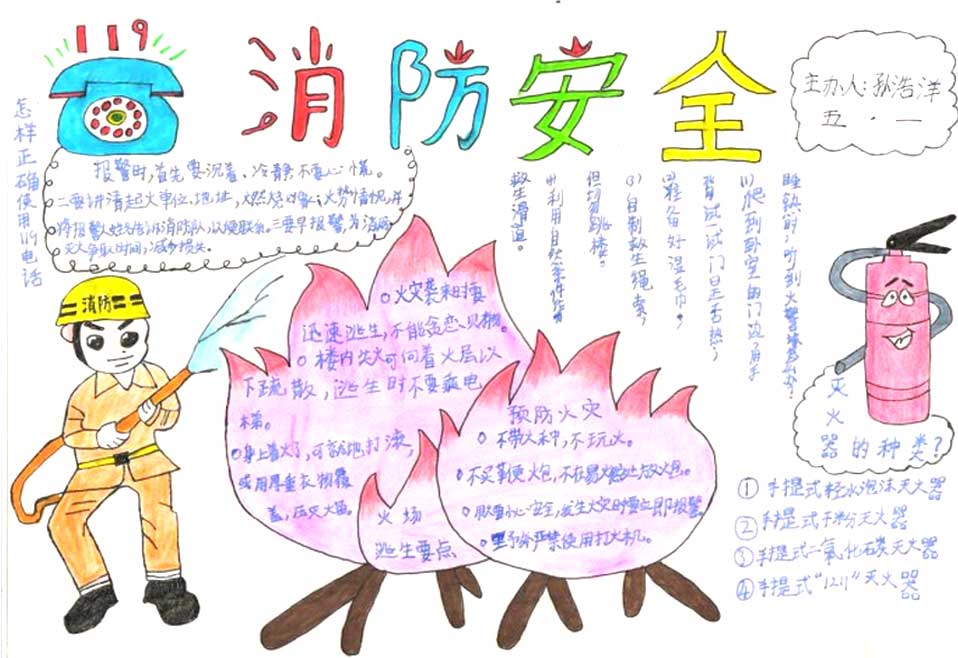 119
消防安全
主办人:孙浩洋
五·一
怎样正确使用119电话
报警时,首先要沉着、冷静不要心慌。
二要讲清起火单位、地址,燃烧对象、火势情况,并
将报警人姓名告诉消防队,以便联系。三要早报警,为消防
灭火争取时间,减少损失。
睡镇时,听到火警
(1)爬到卧室的门边,用手
背试一试门是否热,
(2)准备好湿毛巾,
(3)自制救生绳索,
但切勿跳楼。
(4)利用自然条件作
救生滑道。
消防
○火灾袭来时要
迅速逃生,不能贪恋财物。
○楼内失火可向着火层以
下疏散,逃生时不要乘电
梯。
○身上着火了,可就地打滚,
或用厚重衣物覆
盖,压灭火苗。
火场
逃生要点
预防火灾
○不带火种,不玩火。
○不买鞭火炮,不在易燃处放火炮。
○小心安全,发生火灾时要立即报警
○野外严禁使用打火机。
灭火器的种类?
①手提式轻水泡沫灭火器
②手提式干粉灭火器
③手提式二氧化碳灭火器
④手提式"1211"灭火器